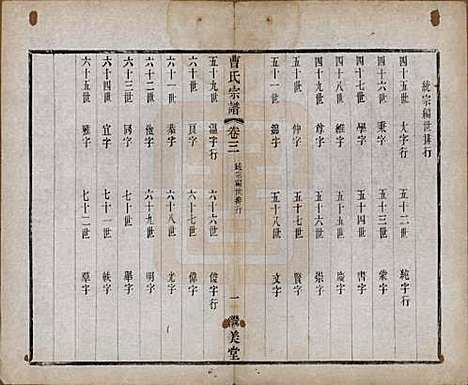 統宗編世排行
四十五世 大字行 五十二世 純字行
四十六世 秉字 五十三世 棠字
四十七世 學字 五十四世 字
四十八世 維字 五十五世 慶字
四十九世 尊字 五十六世 崇字
五十世 仲字 五十七世 賢字
五十一世 錫字 五十八世 文字
曹氏宗譜 卷三 統宗編世排行 一 美堂
五十九世 溫字行 六十六世 俊字行
六十世 良字 六十七世 偉字
六十一世 恭字 六十八世 光字
六十二世 儉字 六十九世 明字
六十三世 同字 七十世 舉字
六十四世 宜字 七十一世 字
六十五世 雍字 七十二世 羣字